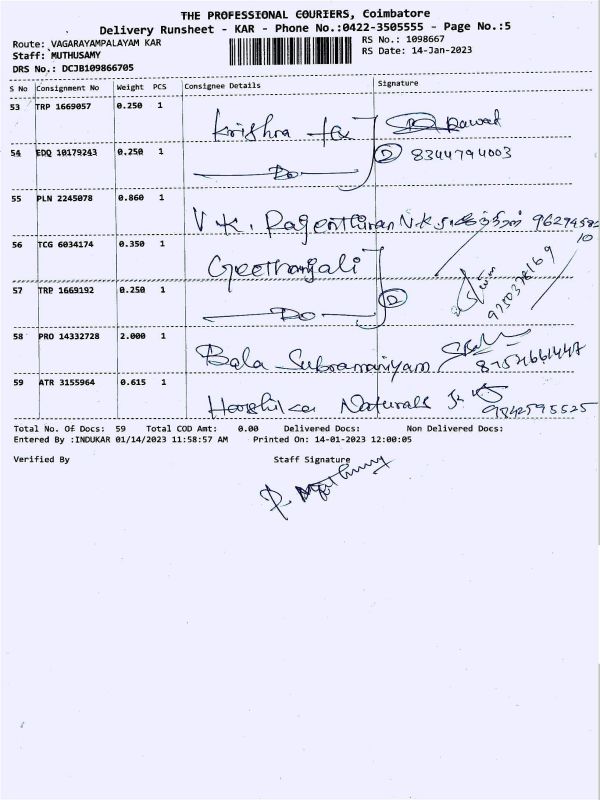 THE PROFESSIONAL COURIERS, Coimbatore
Delivery Runsheet - KAR - Phone No.:0422-3505555 - Page No.:5
Route: VAGARAYAMPALAYAM KAR RS No.: 1098667
Staff: MUTHUSAMY RS Date: 14-Jan-2023
DRS No.: DCJB109866705
S No Consignment No Weight PCS Consignee Details Signature
53 TRP 1669057 0.250 1 Krishna Rawat
54 EDQ 10179243 0.250 1 Do 2 8344794003
55 PLN 2245078 0.860 1 V.K.
56 TCG 6034174 0.350 1 Geethanjali
57 TRP 1669192 0.250 1 Do 2
58 PRO 14332728 2.000 1 Bala Subramaniyam
59 ATR 3155964 0.615 1 Harshika Naturals 9842595525
Total No. Of Docs: 59 Total COD Amt: 0.00 Delivered Docs: Non Delivered Docs:
Entered By :INDUKAR 01/14/2023 11:58:57 AM Printed On: 14-01-2023 12:00:05
Verified By Staff Signature